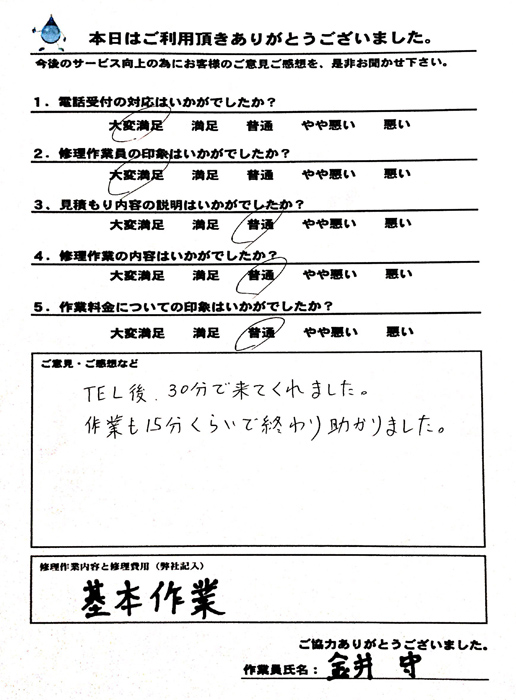 本日はご利用頂きありがとうございました。
今後のサービス向上の為にお客様のご意見ご感想を、是非お聞かせ下さい。
1．電話受付の対応はいかがでしたか？
大変満足 満足 普通 やや悪い 悪い
2．修理作業員の印象はいかがでしたか？
大変満足 満足 普通 やや悪い 悪い
3．見積もり内容の説明はいかがでしたか？
大変満足 満足 普通 やや悪い 悪い
4．修理作業の内容はいかがでしたか？
大変満足 満足 普通 やや悪い 悪い
5．作業料金についての印象はいかがでしたか？
大変満足 満足 普通 やや悪い 悪い
ご意見・ご感想など
TEL後、30分で来てくれました。
作業も15分くらいで終わり助かりました。
修理作業内容と修理費用（弊社記入）
基本作業
ご協力ありがとうございました。
作業員氏名：金井 守